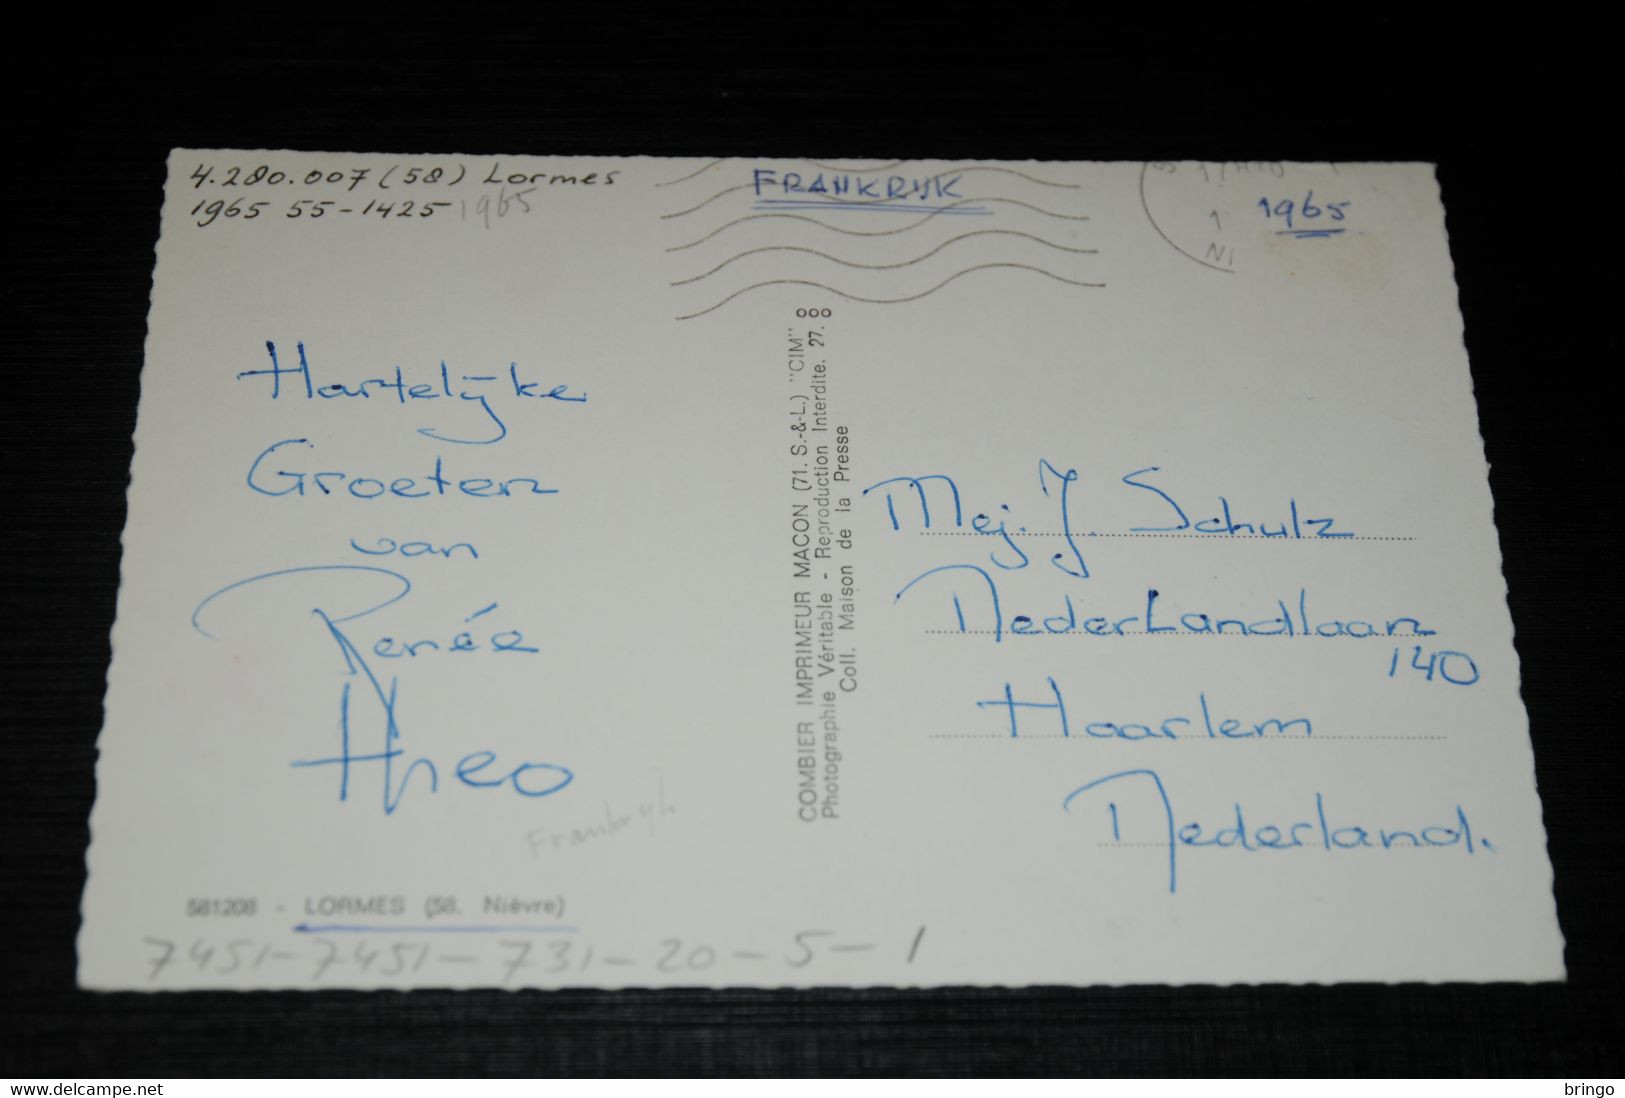 4.280.007 (58) Lormes
1965 55-1425 1965
FRANKRIJK
1965
Hartelijke
Groeten
van
Renée
Theo
Frankrijk
581208 - LORMES (58. Nièvre)
7451-7451-731-20-5-1
COMBIER IMPRIMEUR MACON (71. S.-&-L.) "CIM"
Photographie Véritable - Reproduction Interdite. 27.
Coll. Maison de la Presse
Mej. J. Schulz
Nederlandlaan
140
Haarlem
Nederland.
bringo